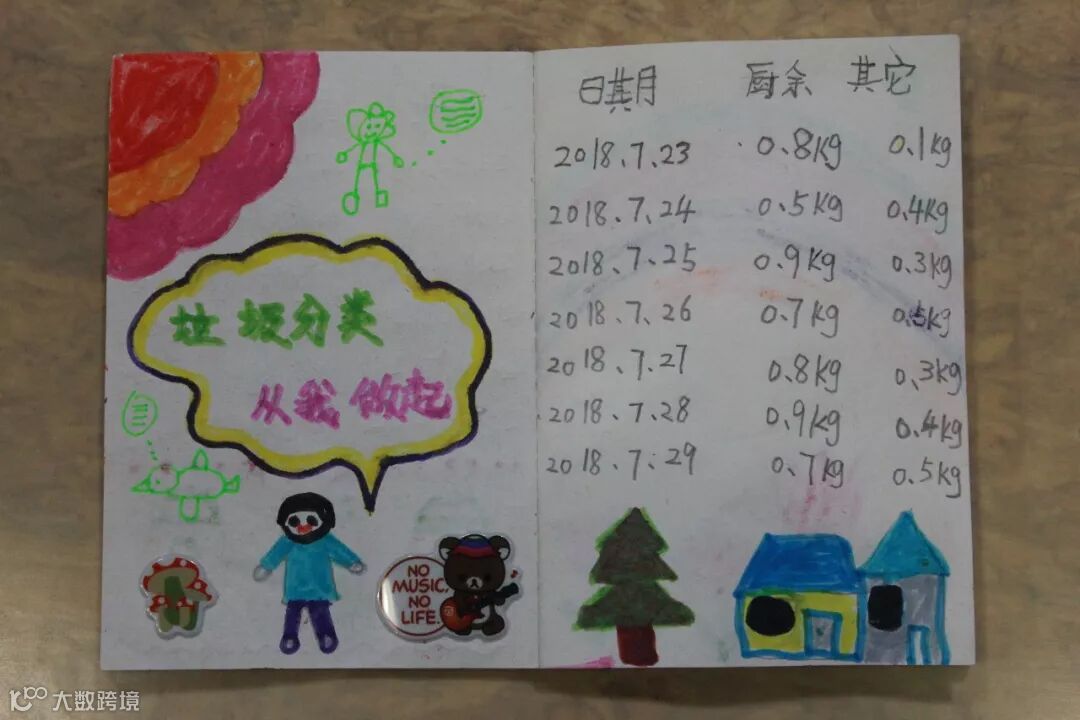 垃圾分类
从我做起
NO
MUSIC,
NO
LIFE.
日期 厨余 其它
2018.7.23 0.8kg 0.1kg
2018.7.24 0.5kg 0.4kg
2018.7.25 0.9kg 0.3kg
2018.7.26 0.7kg 0.5kg
2018.7.27 0.8kg 0.3kg
2018.7.28 0.9kg 0.4kg
2018.7.29 0.7kg 0.5kg
大数跨境